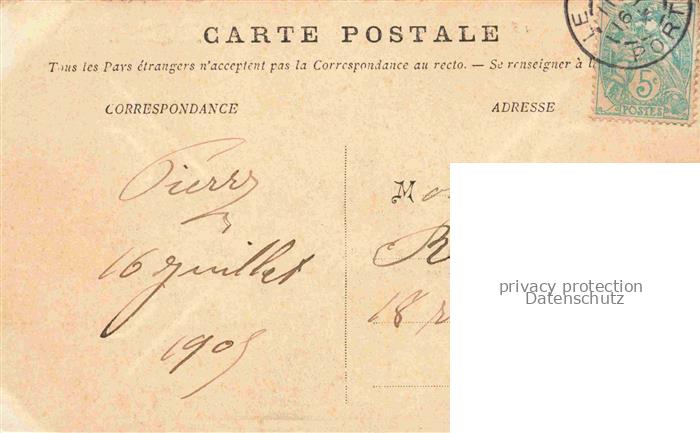 CARTE POSTALE
Tous les Pays étrangers n'acceptent pas la Correspondance au recto. — Se renseigner à l
CORRESPONDANCE
ADRESSE
LE PORT
5c
POSTES
Pierre
16 juillet
1905
Mo
R
18 r
privacy protection
Datenschutz